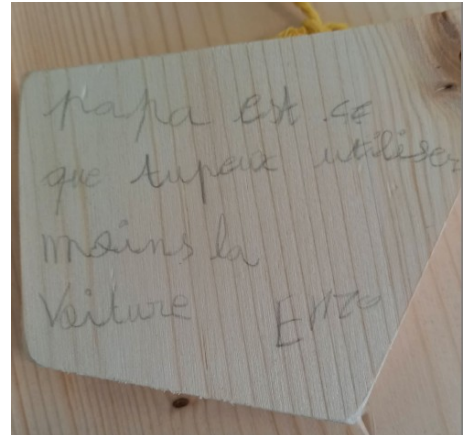 papa est ce
que tu peux utiliser
moins la
voiture Enzo